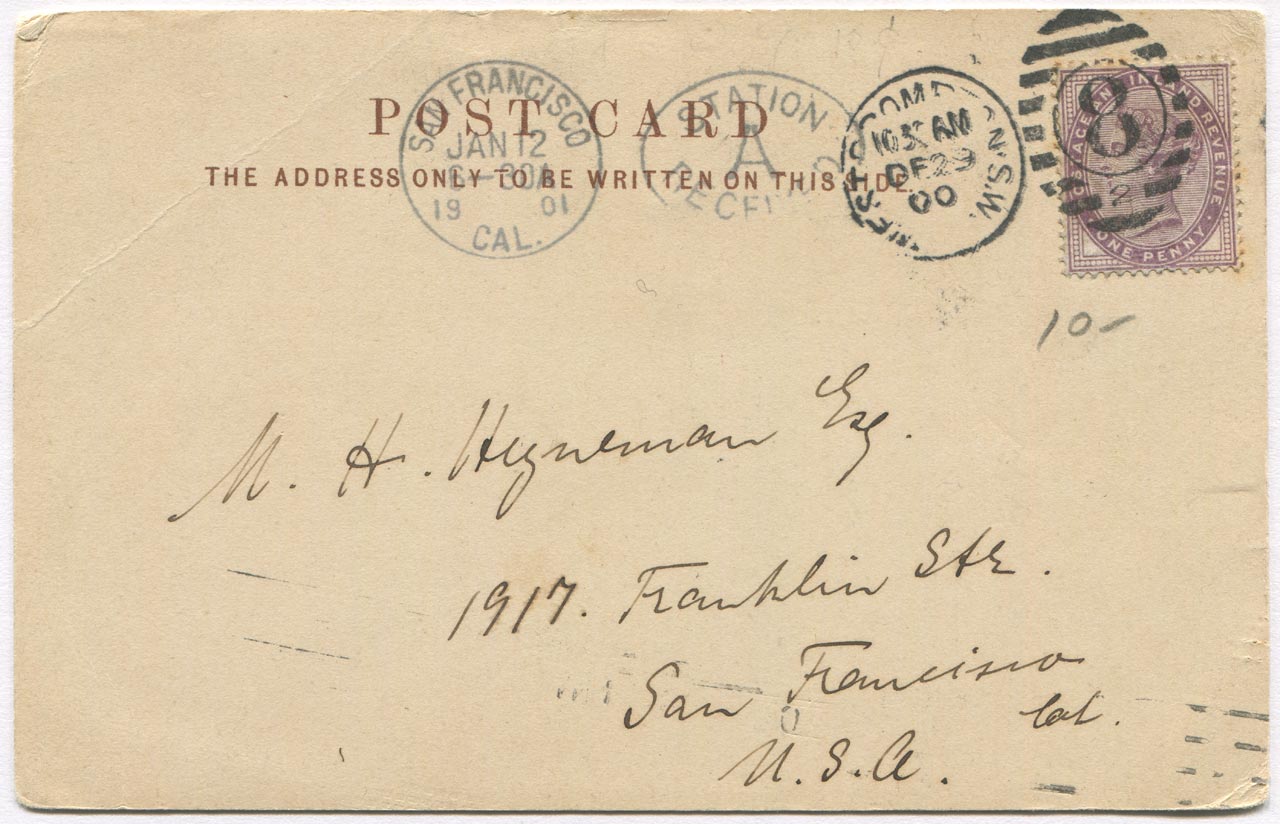 POST CARD
THE ADDRESS ONLY TO BE WRITTEN ON THIS SIDE
SAN FRANCISCO
JAN 12
19 01
CAL.
STATION
A
10 30 AM
DE 29
00
S.W.
8
2
POSTAGE AND INLAND REVENUE
ONE PENNY
10-
M. H. Heyneman Esq.
1917. Franklin Str.
San Francisco
Cal.
U.S.A.